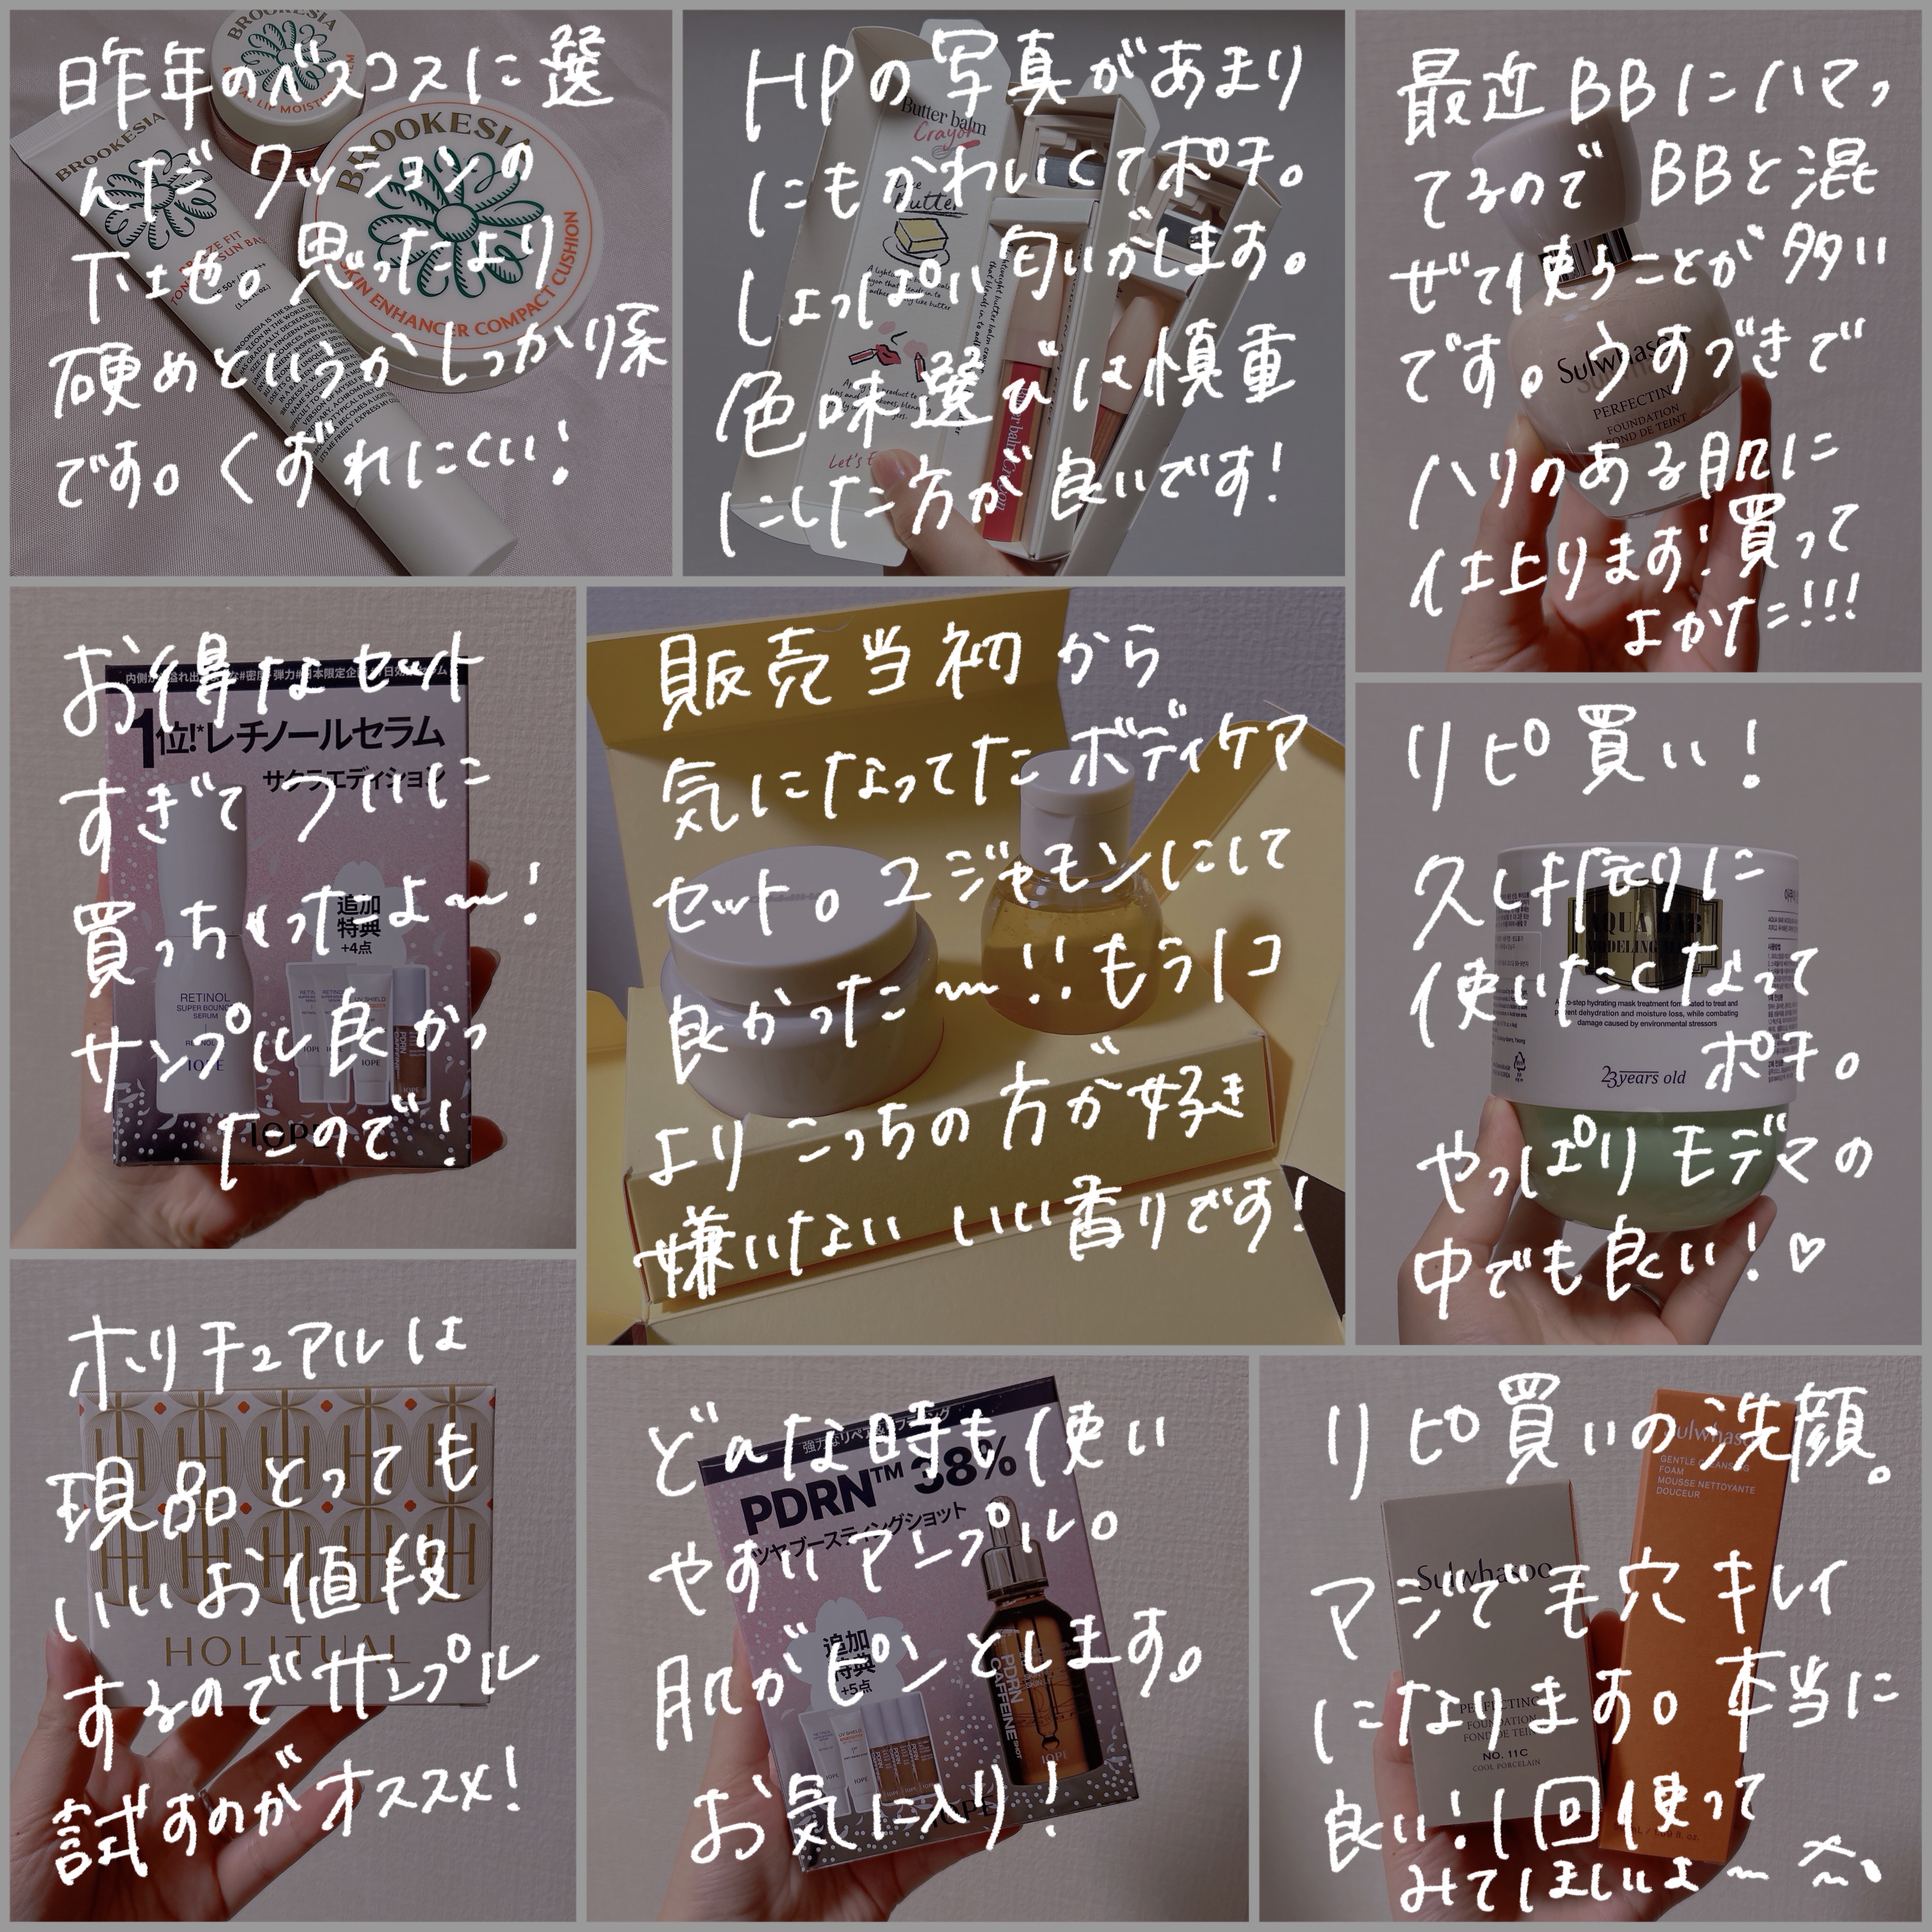 昨年のベスコスに選
んだクッションの
下地。思ったより
硬めというかしっかり系
です。くずれにくい!
BROOKESIA
BROOKESIA
BROOKESIA
SKIN ENHANCER COMPACT CUSHION
HPの写真があまり
にもかわいくてポチ。
しょっぱい匂いがします。
色味選びは慎重
にした方が良いです!
Butter balm
Crayon
最近BBにハマっ
てるのでBBと混
ぜて使うことが多い
です。うすづきで
ハリのある肌に
仕上ります!買って
よかた!!!
Sulwhasoo
PERFECTING
FOUNDATION
FOND DE TEINT
お得なセット
すぎてついに
買っちゃったよ〜!
サンプル良かっ
たので!
1位!*レチノールセラム
サクラエディション
追加
特典
+4点
RETINOL
SUPER BOUNCE
SERUM
IOPE
IOPE
販売当初から
気になってたボディケア
セット。2ジャモンにして
良かった〜!!もう1コ
よりこっちの方が好き
嫌いないいい香りです!
リピ買い!
久しぶりに
使いたくなって
ポチ。
やっぱりモデマの
中でも良い!♡
AQUA LAB
MODELING
A two-step hydrating mask treatment formulated to treat and
prevent dehydration and moisture loss, while combating
damage caused by environmental stressors
23 years old
ホリチュアルは
現品とっても
いいお値段
するのでサンプル
試すのがオススメ!
HOLITUAL
どんな時も使い
やすいアンプル。
肌がピンとします。
お気に入り!
PDRN™ 38%
ツヤブースティングショット
追加
特典
+5点
PDRN
CAFFEINE SHOT
IOPE
リピ買いの洗顔。
マジで毛穴キレイ
になります。本当に
良い!1回使って
みてほしいよ〜
Sulwhasoo
PERFECTING
FOUNDATION
FOND DE TEINT
NO. 11C
COOL PORCELAIN
Sulwhasoo
GENTLE CLEANSING
FOAM
MOUSSE NETTOYANTE
DOUCEUR